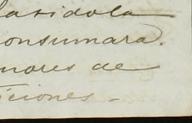 batidola
consumara.
nores de
iciones.-